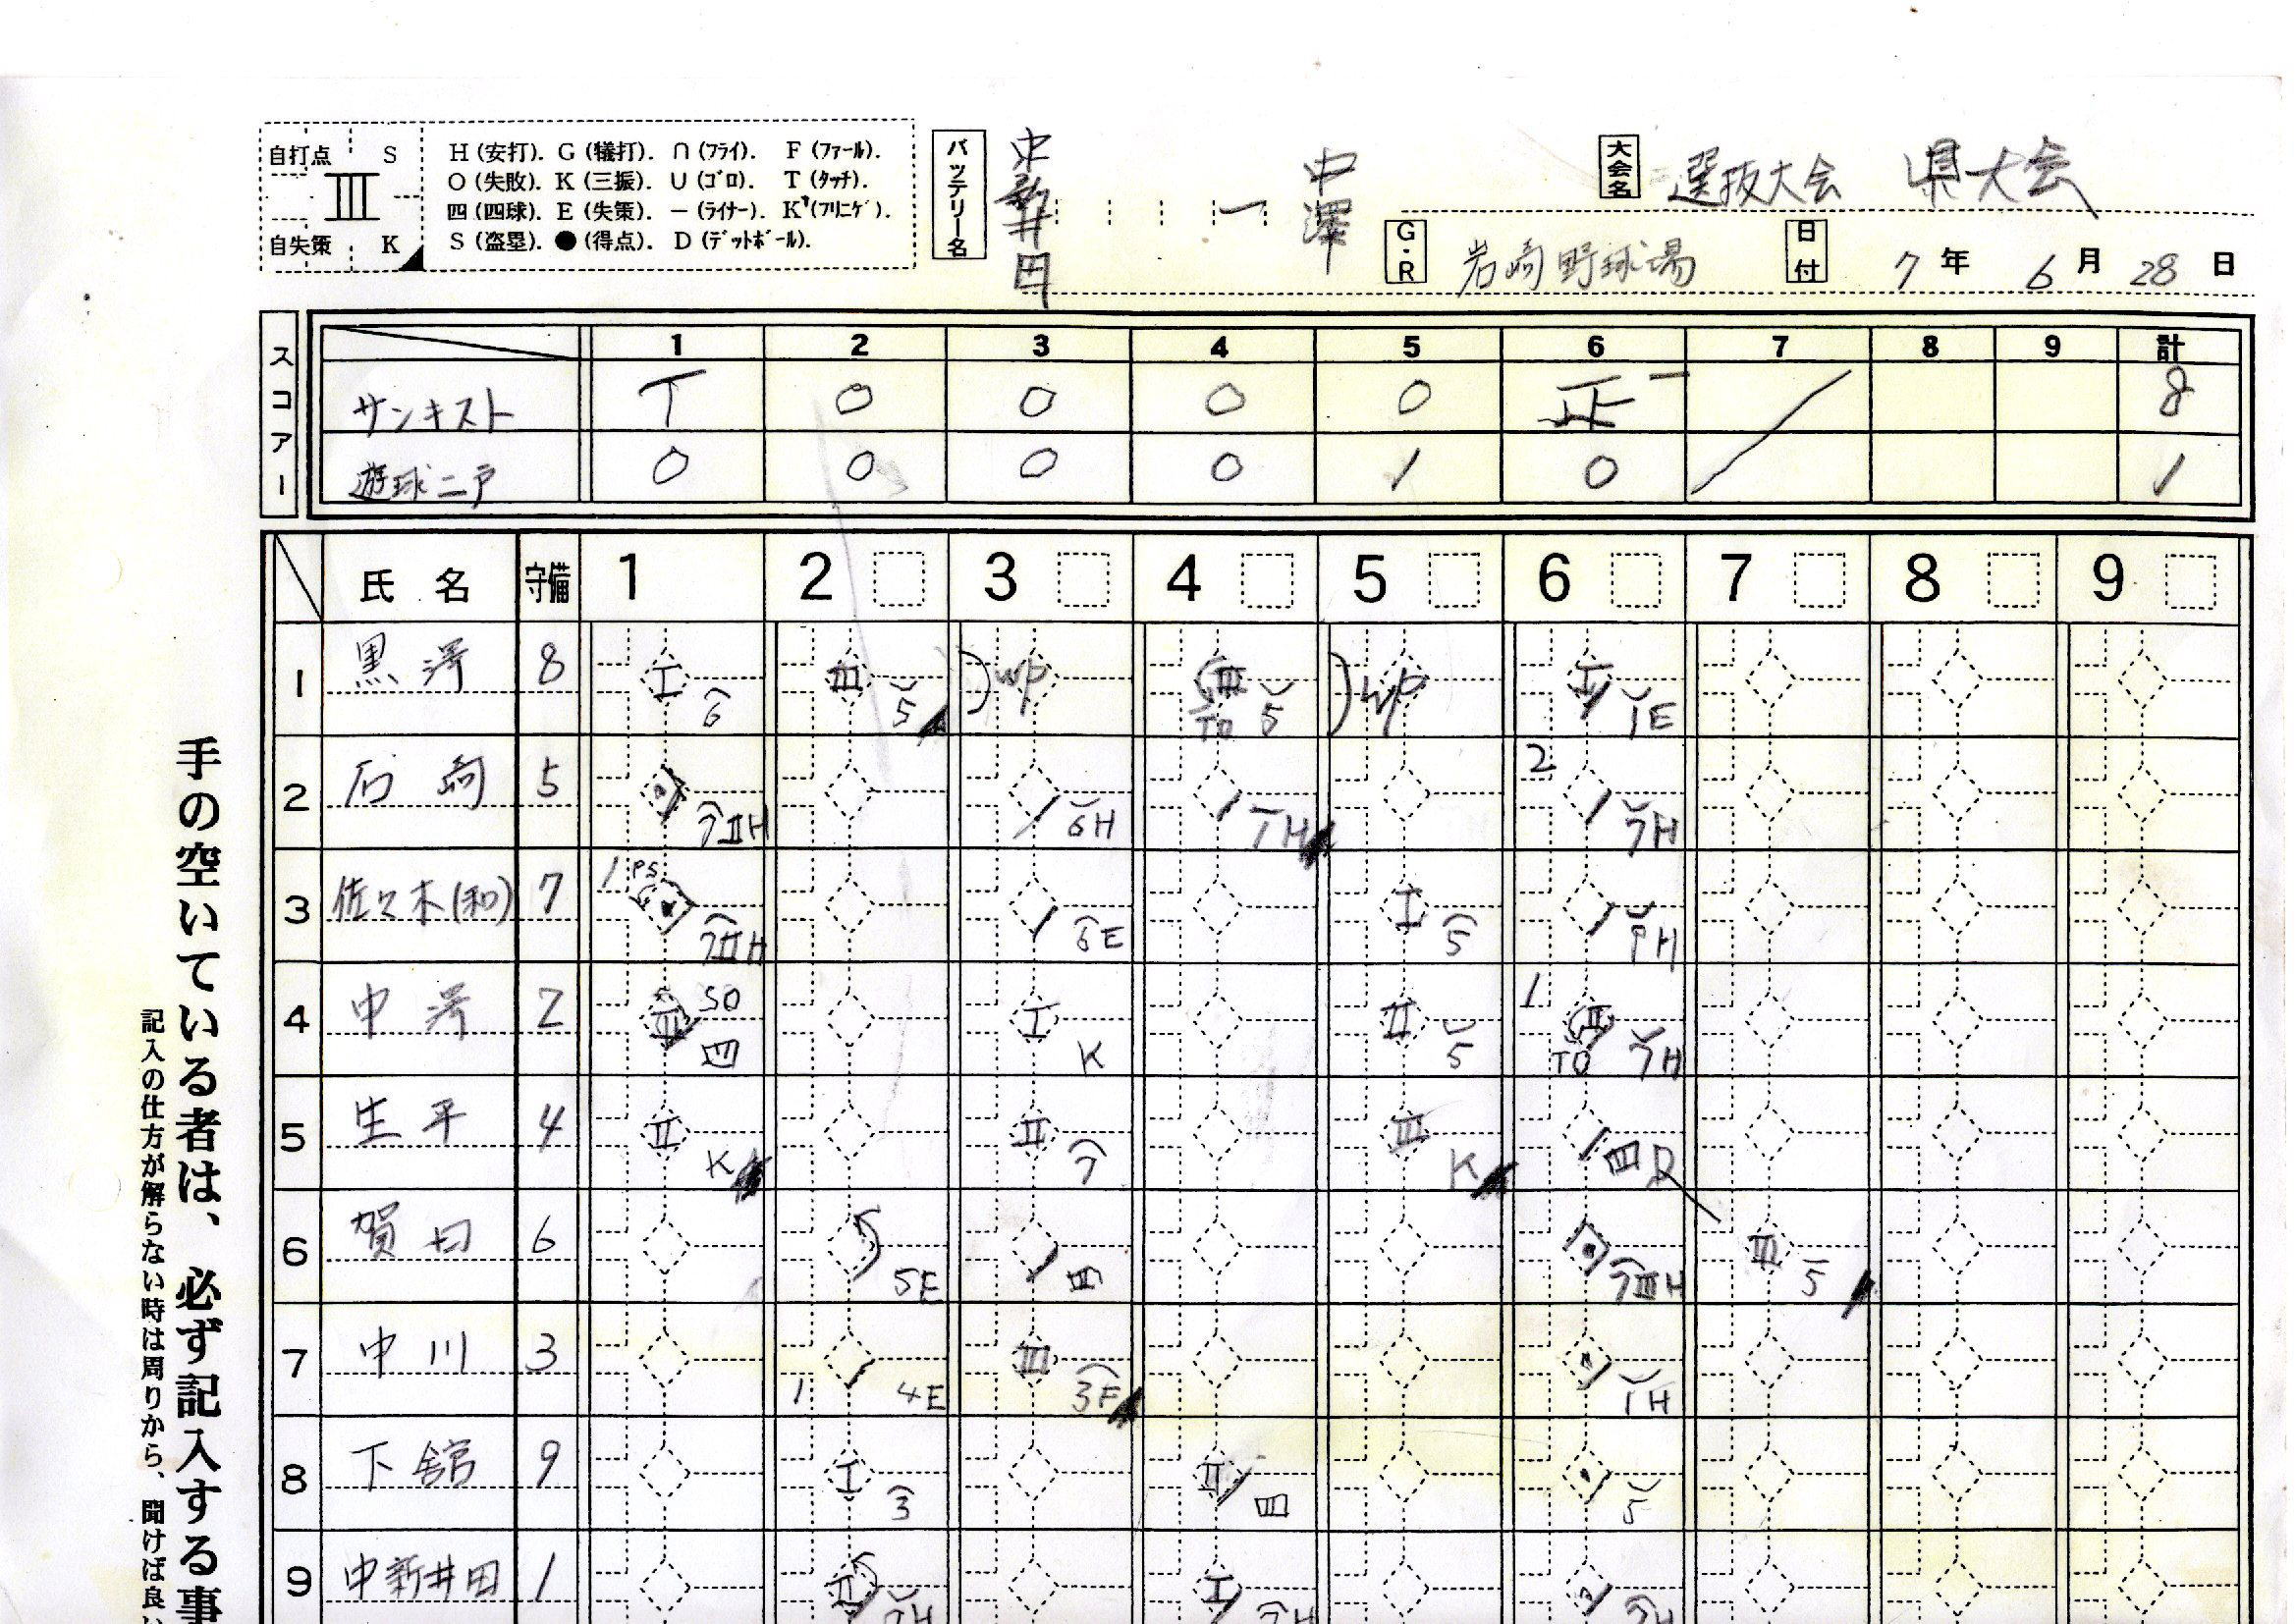 自打点 S
III
自失策 K
H (安打). G (犠打). ∩ (フライ). F (ファール).
O (失敗). K (三振). U (ゴロ). T (タッチ).
四 (四球). E (失策). − (ライナー). K (フリニゲ).
S (盗塁). ● (得点). D (デットボール).
バッテリー名 中新井田 − 中澤
大会名 選抜大会 県大会
G・R 岩崎野球場
日付 7年 6月 28日
スコアー
1 2 3 4 5 6 7 8 9 計
サンキスト T 0 0 0 0 正一 8
遊球二戸 0 0 0 0 1 0 1
氏名 守備 1 2 3 4 5 6 7 8 9
1 黒澤 8 I 6 III 5 WP III TO 5 WP I 1E
2 石崎 5 7IIH 6H 1H 2 7H
3 佐々木(和) 7 1 PS 7IIH 6E I 5 9H
4 中澤 2 III SO 四 I K II 5 1 II TO 7H
5 生平 4 II K II 7 III K 四
6 賀田 6 5E 四 7IIIH III 5
7 中川 3 1 4E III 3F 1H
8 下舘 9 I 3 II 四 5
9 中新井田 1 II 7H I 7H
手の空いている者は、必ず記入する事
記入の仕方が解らない時は周りから、聞けば良い